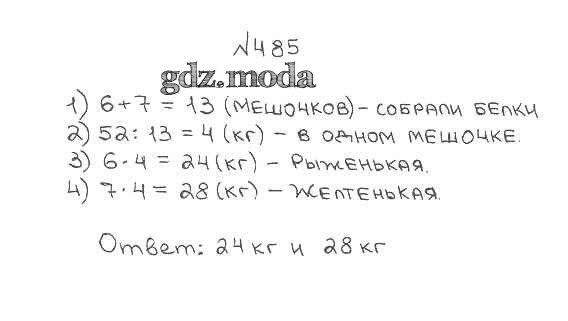 №485
gdz.moda
1) 6+7 = 13 (мешочков) - собрали белки
2) 52 : 13 = 4 (кг) - в одном мешочке.
3) 6 · 4 = 24 (кг) - Рыженькая.
4) 7 · 4 = 28 (кг) - Желтенькая.
Ответ: 24 кг и 28 кг